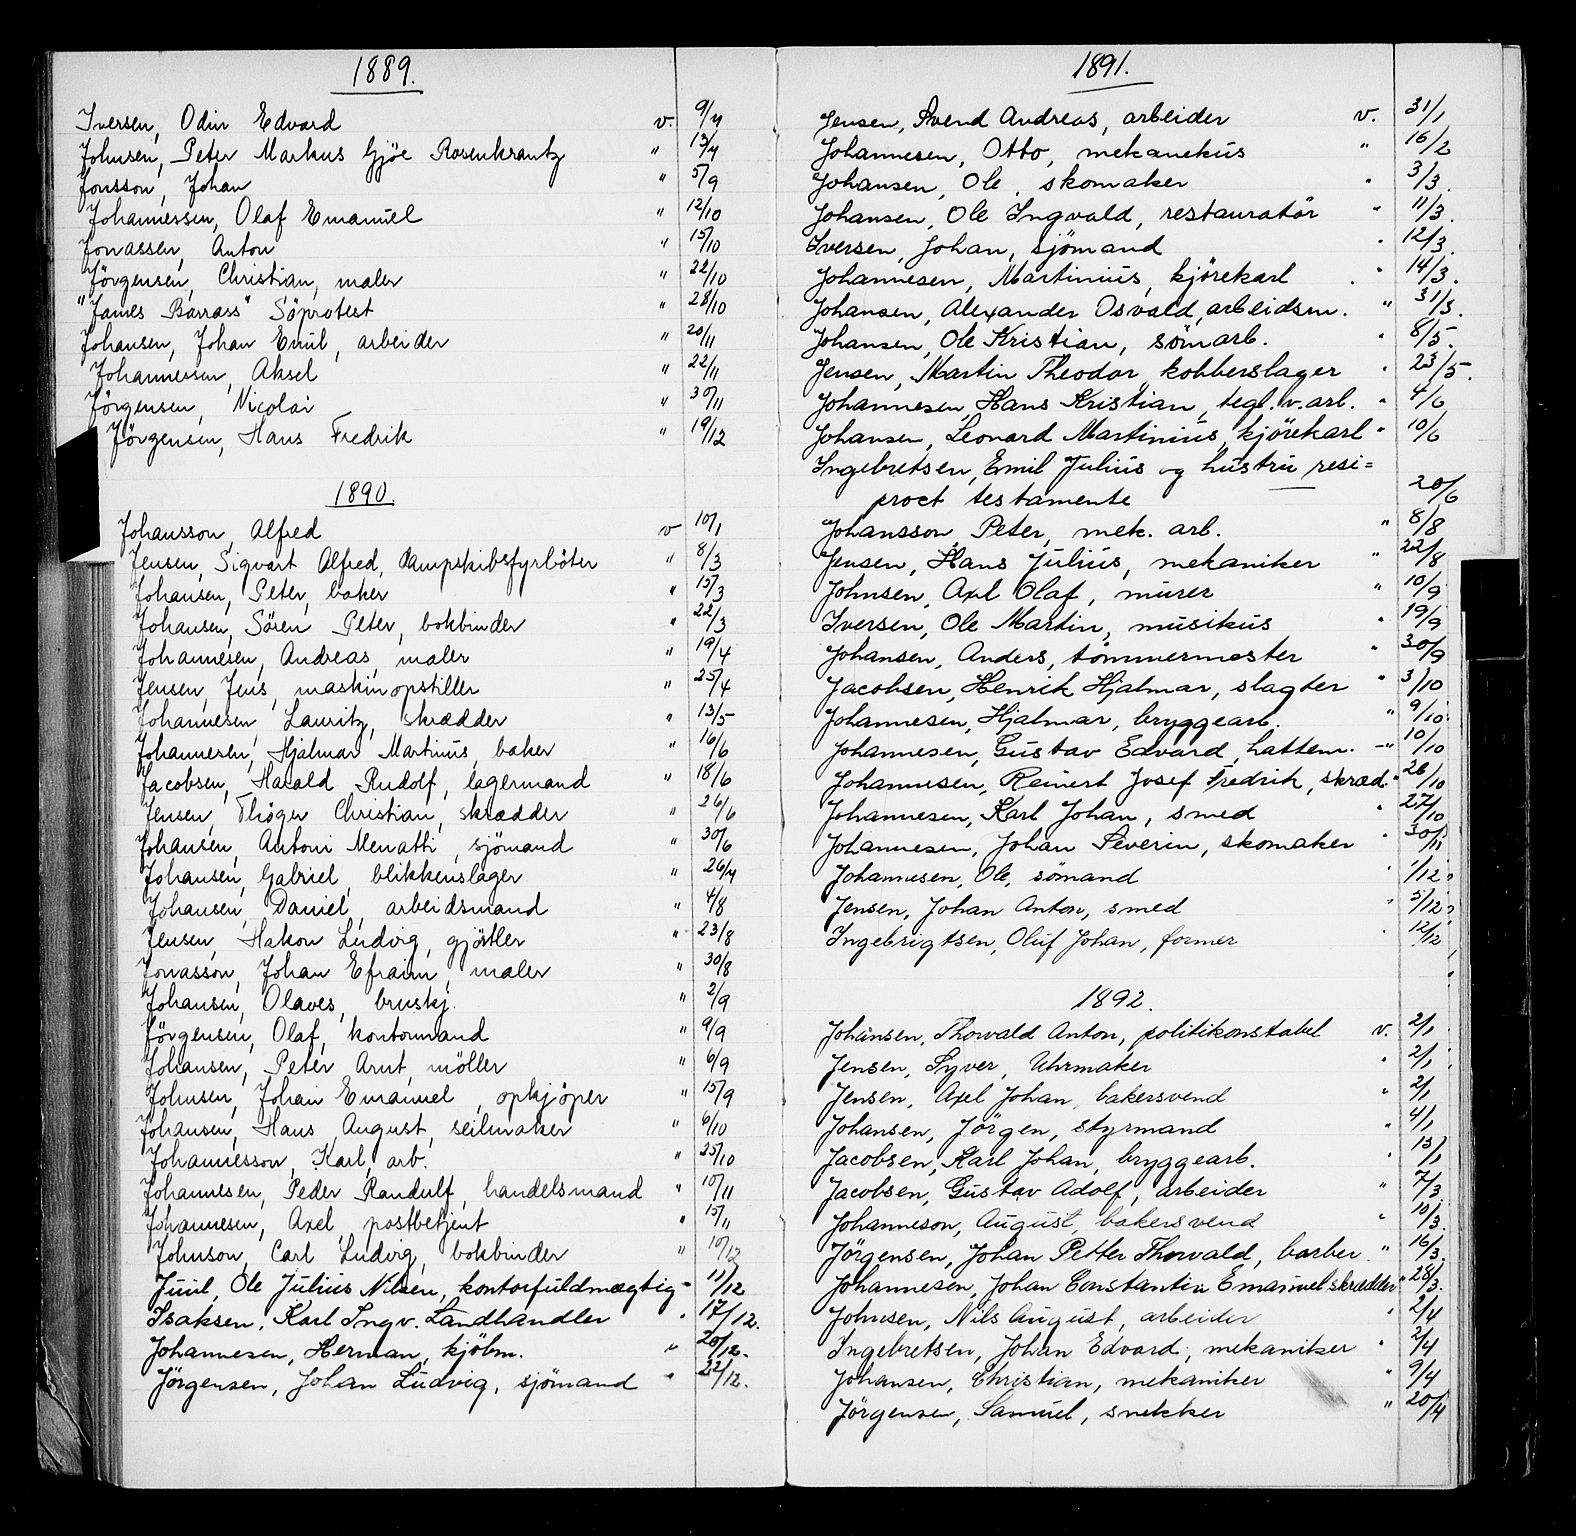 1889.
Iversen, Odin Edvard v. 9/7
Johnsen, Peter Markus Gjöe Rosenkrantz " 13/7
Jonsson, Johan " 5/9
Johannessen, Olaf Emanuel " 12/10
Jonassen, Anton " 15/10
Jörgensen, Christian, maler " 22/10
"James Barrass" Söprotest " 28/10
Johansen, Johan Emil, arbeider " 20/11
Johannessen, Aksel " 22/11
Jörgensen, Nicolai " 30/11
Jörgensen, Hans Fredrik " 19/12
1890.
Johansson, Alfred v 10/1
Jensen, Sigvart Alfred, Dampskibsfyrböter " 8/3
Johansen, Peter, baker " 15/3
Johansen, Sören Peter, bokbinder " 22/3
Johannesen, Andreas, maler " 19/4
Jensen, Jens, maskinopstiller " 25/4
Johannesen, Lauritz, skrædder " 13/5
Johannesen, Hjalmar Martinus, baker " 16/6
Jacobsen, Harald Rudolf, lagermand " 18/6
Jensen, Thöger Christian, skrædder " 26/6
Johansen, Antoni Menatti, sjömand " 30/6
Johansen, Gabriel, blikkenslager " 26/7
Johansen, Daniel, arbeidsmand " 4/8
Jensen, Hakon Ludvig, gjörtler " 23/8
Jonasson, Johan Efraim, maler " 30/8
Johansen, Olaves, bruskj. " 2/9
Jörgensen, Olaf, kontormand " 9/9
Johansen, Peter Arnt, möller " 6/9
Johnsen, Johan Emanuel, opkjöper " 15/9
Johansen, Hans August, seilmaker " 6/10
Johannesson, Karl, arb. " 25/10
Johannesen, Peder Randulf, handelsmand " 10/11
Johannesen, Axel, postbetjent " 15/11
Johnson, Carl Ludvig, bokbinder " 10/12
Juul, Ole Julius Nilsen, kontorfuldmægtig " 11/12
Isaksen, Karl Ingv. Landhandler " 17/12.
Johannesen, Herman, kjöbm. " 20/12.
Jörgensen, Johan Ludvig, sjömand " 22/12.
1891.
Jensen, Svend Andreas, arbeider v. 31/1
Johannesen, Otto, mekanekus " 16/2
Johansen, Ole, skomaker " 3/3.
Johansen, Ole Ingvald, restauratör " 11/3.
Iversen, Johan, sjömand " 12/3.
Johannesen, Martinius, kjörekarl " 14/3.
Johansen, Alexander Osvald, arbeidsm. " 31/3.
Johansen, Ole Kristian, sömarb. " 8/5.
Jensen, Martin Theodor, kobberslager " 23/5.
Johannesen, Hans Kristian, tegl.v.arb. " 4/6
Johansen, Leonard Martinius, kjörekarl " 10/6
Ingebretsen, Emil Julius og hustru resi=
proct testamente 20/6
Johansson, Peter, mek. arb. " 8/8
Jensen, Hans Julius, mekaniker " 22/8
Johnsen, Axel Olaf, murer " 10/9
Iversen, Ole Martin, musikus " 19/9
Johansen, Anders, tömmermester " 30/9
Jacobsen, Henrik Hjalmar, slagter " 3/10
Johannesen, Hjalmar, bryggearb. " 9/10
Johannesen, Gustav Edvard, hattem. " 10/10
Johannesen, Reinert Josef Fredrik, skræd. " 26/10
Johannesen, Karl Johan, smed " 27/10
Johannesen, Johan Severin, skomaker " 30/11
Johannesen, Ole, sömand " 1/12
Jensen, Johan Anton, smed " 5/12
Ingebrigtsen, Oluf Johan, former " 12/12
1892.
Johansen, Thorvald Anton, politikonstabel v. 2/1
Jensen, Syver, Uhrmaker " 2/1
Jensen, Axel Johan, bakersvend " 2/1
Johansen, Jörgen, styrmand " 4/1
Jacobsen, Karl Johan, bryggearb. " 15/1
Jacobsen, Gustav Adolf, arbeider " 7/3
Johanneson, August, bakersvend " 10/3.
Jörgensen, Johan Petter Thorvald, barber " 16/3.
Johannesen, Johan Constantin Emanuel skrædder " 28/3.
Johnsen, Nils August, arbeider " 2/4
Ingebretsen, Johan Edvard, mekaniker " 2/4
Johansen, Christian, mekaniker " 9/4
Jörgensen, Samuel, snekker " 20/4